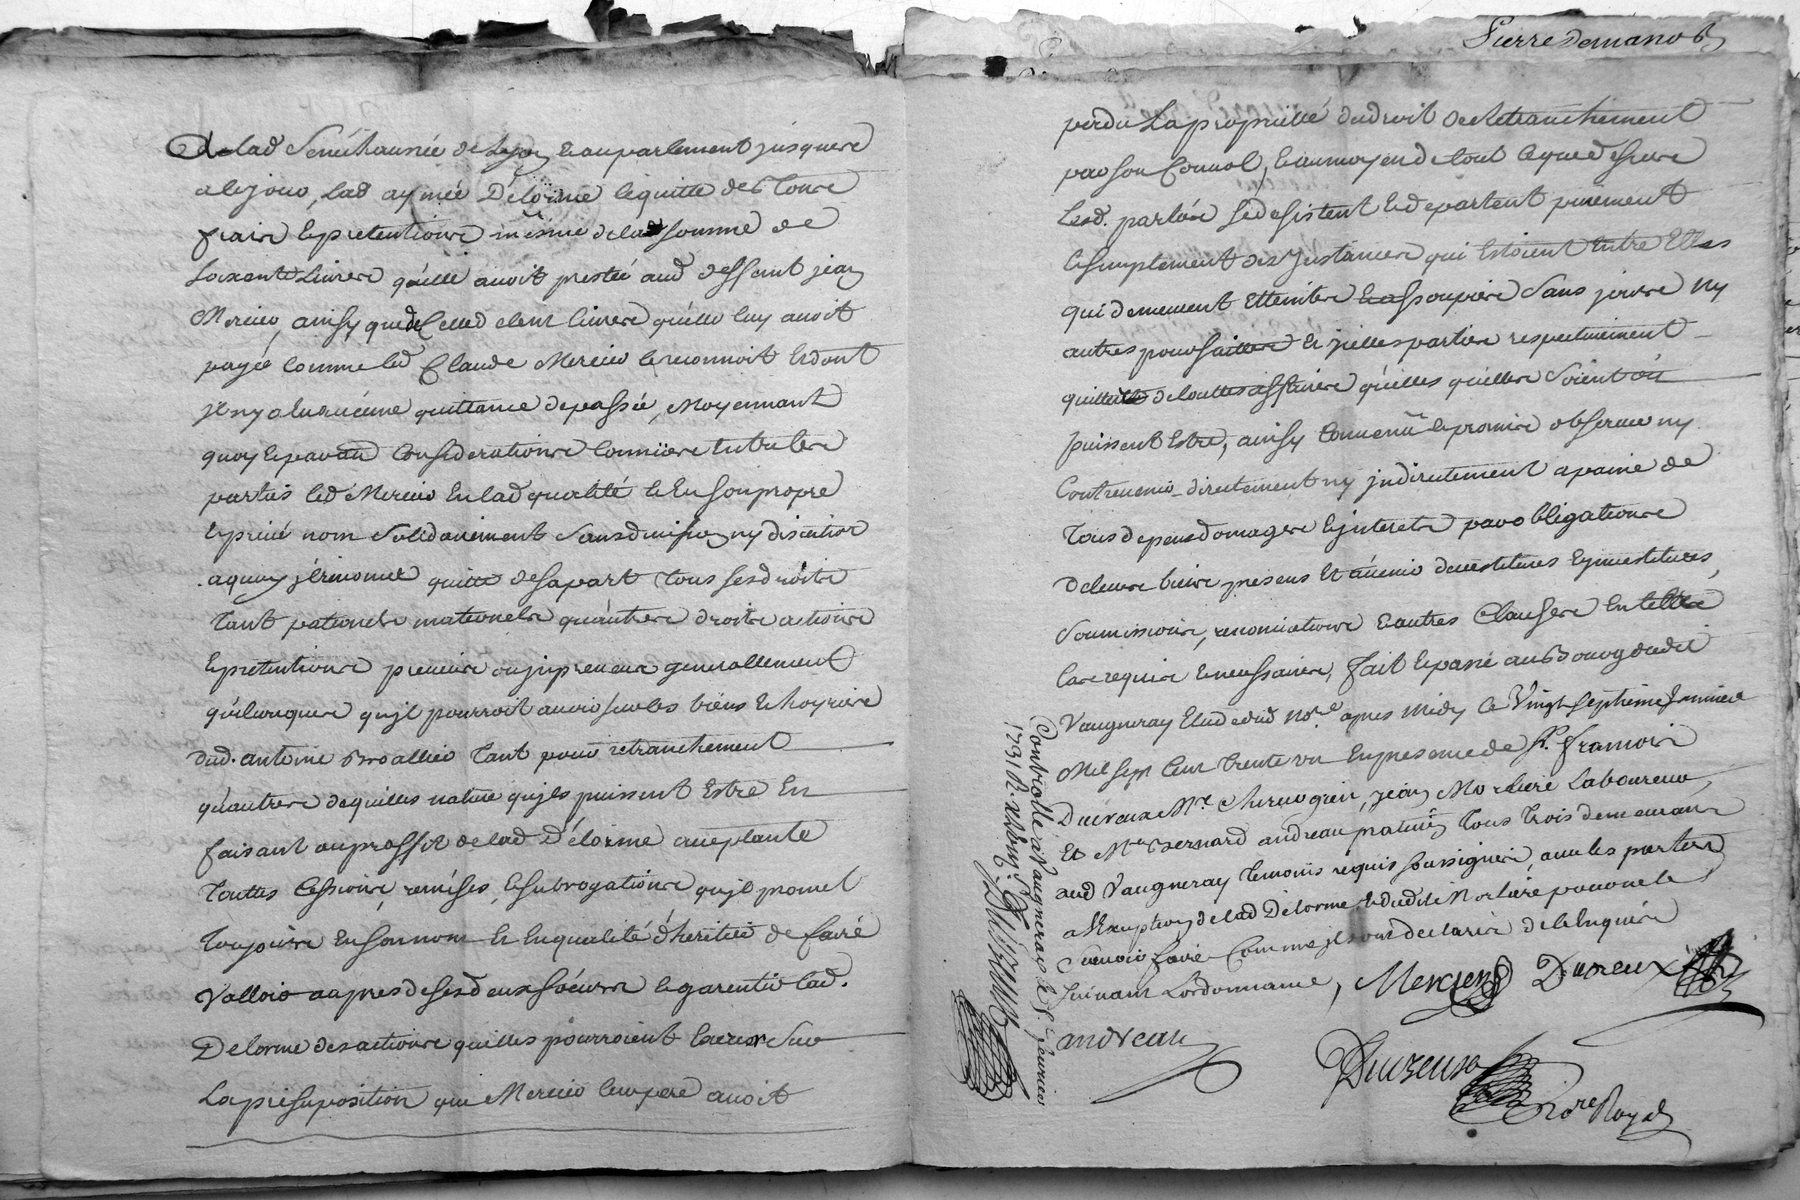 A lad Senechaussée de Lyon et au parlement jusques
a ce jour, lad aymée Délorme le quitte des Tous
fraix et pretentions mesme de lad somme de
soixante livres quelle avoit prestée aud deffunt jean
Mercier, ainsy que de celle d cent livres quelle luy avoit
payé comme led Claude Mercier le reconnoit et dont
il n'y a eu aucune quittance de passée, Moyennant
quoy et par aud considerations comme entre les
parties led Mercier en lad qualité et en son propre
et privé nom solidairement sans division ny discution
a quoy il renonce quitte de sa part tous ses droits
tant paternels maternels qu'autres droits actions
et pretentions presens ou a venir generallement
quelconques qu'il pourroit avoir sur les biens et hoyries
dud. antoine Broallier tant pour retranchement
qu'autres de quelles nature qu'ils puissent Estre En
faisant au proffit de lad Délorme acceptante
Touttes Cessions, remises, et subrogations qu'il promet
Toujours en son nom et en qualité d'heritier de faire
Valloir aupres de ses deux soeurs et garentir lad.
Delorme des actions quelles pourroient Exercer sur
La presuposition que Mercier leur pere avoit
Pierre Demano 6
perdu La proprieté du droit de Retranchement
par son Convol, et au moyen de tout ce que dessus
Lesd. parties se desistent et departent purement
et simplement des Instances qui Estoient Entre Elles
qui demeurent Etteintes et assoupies sans jamais ny
autres poursuittes et icelles parties respectivement
quittes de touttes affaires quelles quelles soient ou
puissent Estre, ainsy Convenu et promis observer ny
Contrevenir directement ny indirectement a paine de
Tous depens domages et interets par obligations
de leurs biens presens et avenir devestitures et investitures,
soumissions, renonciations et autres Clauses en telles
Cas requises et necessaires, fait et passé au Bourg dudit
Vaugneray Etude dud No.re apres midy le Vingt septieme janvier
Mil sept Cent trente un En presence de Sr. francois
Duvreux Me. Chirurgien, jean Morliere Laboureur,
Et Me Bernard andreau praticien Tous trois demeurans
aud Vaugneray temoins requis soussignés avec les parties
a l'Exeption de lad Delorme et dudit Morliere pour ne le
sçavoir faire Comme ils ont declaré de ce Enquis
suivant L'ordonnance, Mercier Duvreux
andreau
Duvreux
No.re Royal
Controllé a Vaugneray le 8 fevrier
1731 R.